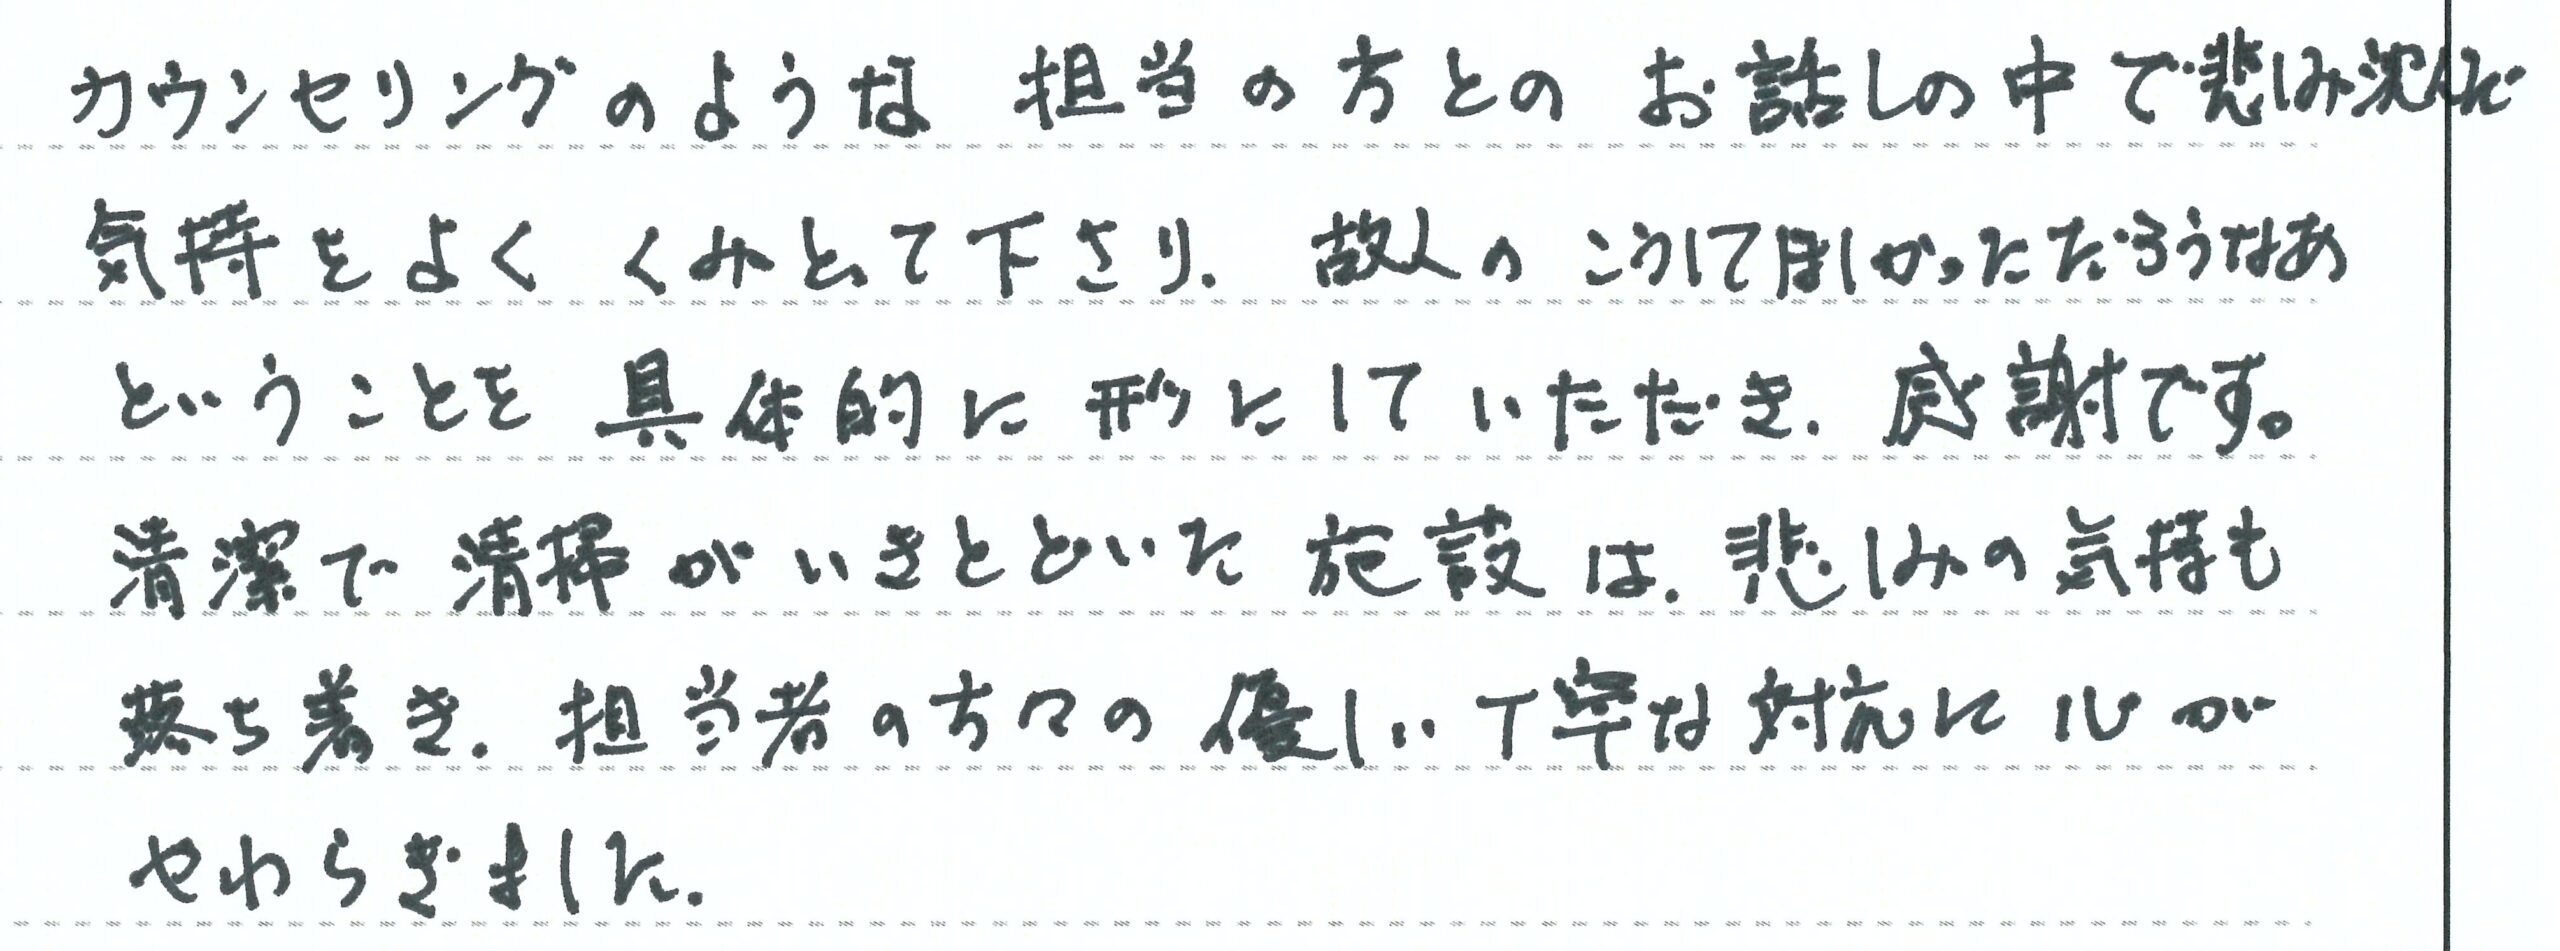 カウンセリングのような 担当の方との お話しの中で悲しみ沈んだ
気持をよく くみとって下さり、故人の こうしてほしかっただろうなあ
ということを 具体的に形にして いただき、感謝です。
清潔で清掃がいきとどいた施設は、悲しみの気持も
落ち着き、担当者の方々の優しい丁寧な対応に心が
やわらぎました。